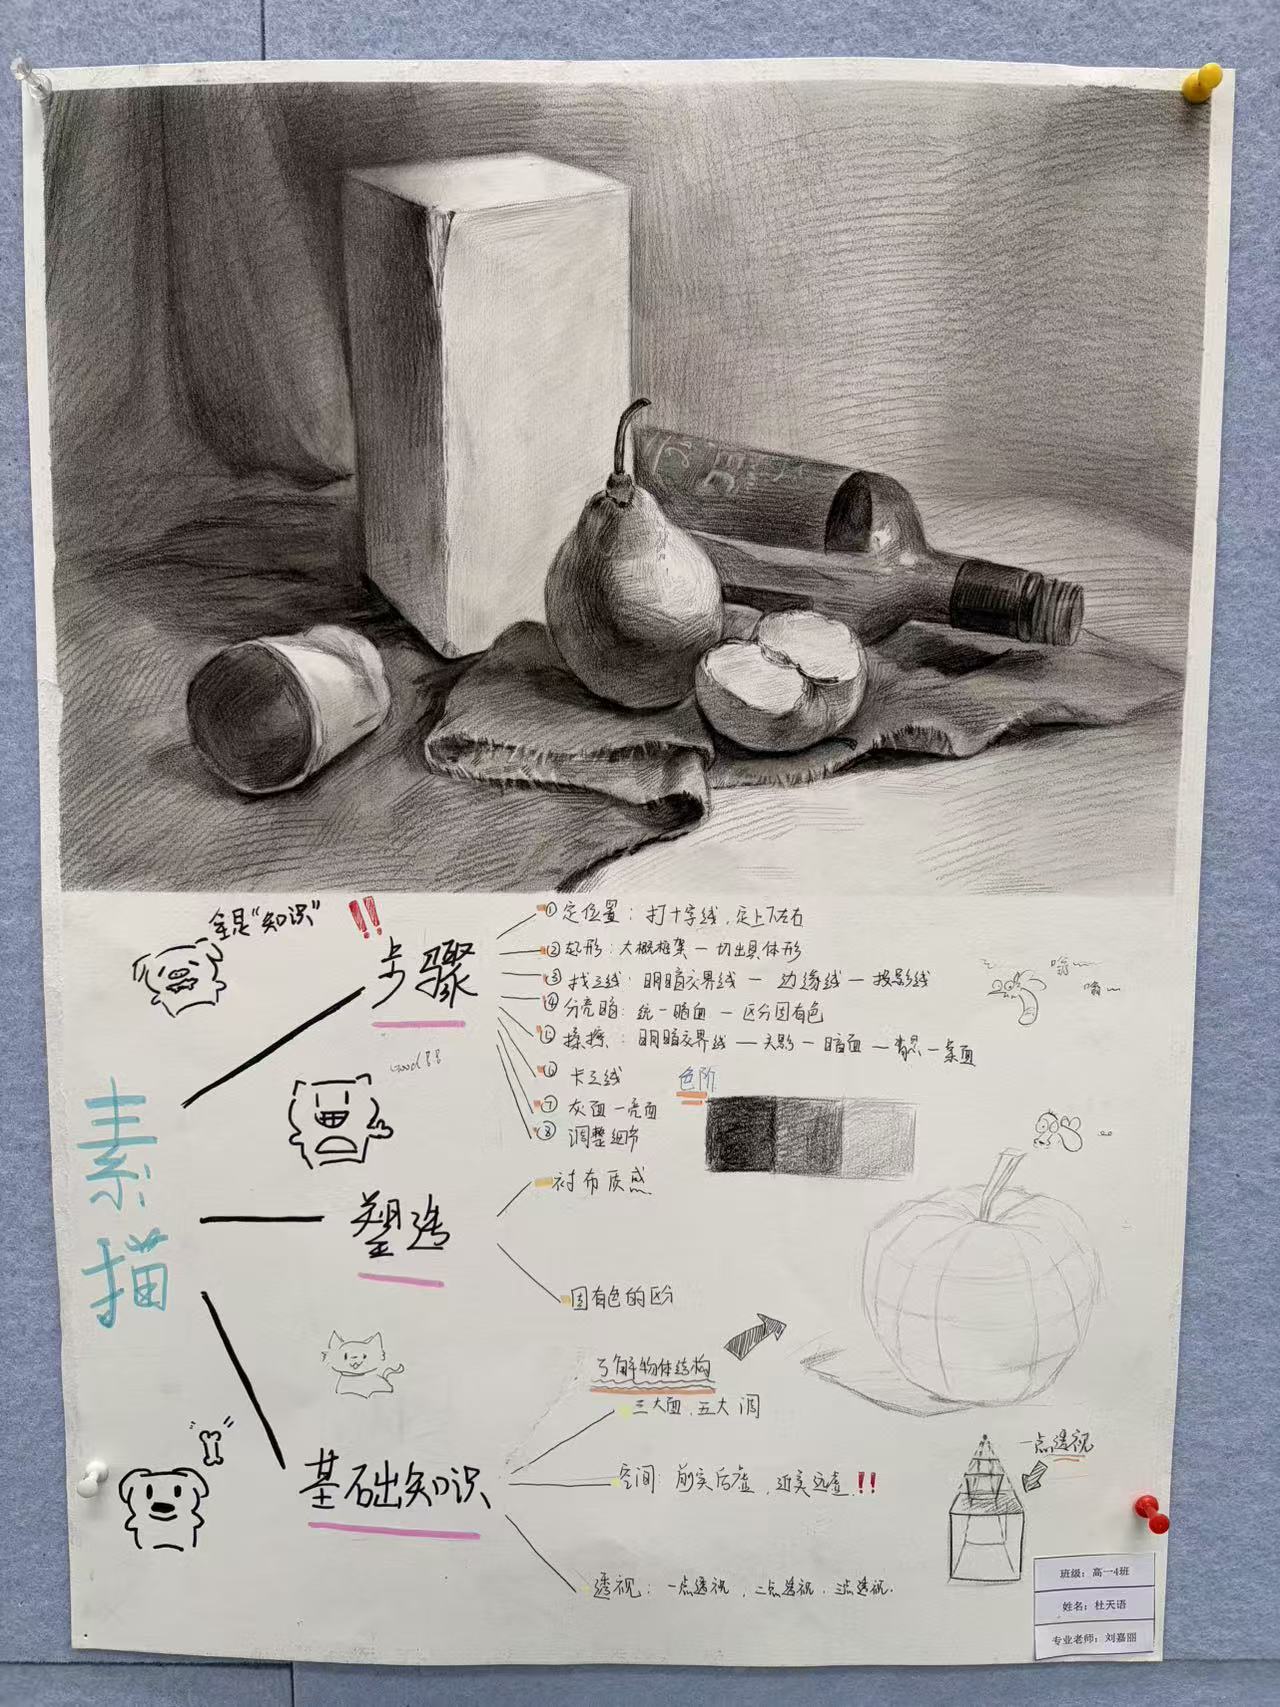 全是“知识”
!!
步骤
①定位置：打十字线，定上下左右
②起形：大概框架—切出具体形
③找三线：明暗交界线—边缘线—投影线
④分亮暗：统一暗面—区分固有色
⑤揉擦：明暗交界线—投影—暗面—背景—桌面
⑥卡三线
⑦灰面—亮面
⑧调整细节
色阶
嗡
嗡
Good
素描
塑造
衬布质感
固有色的区分
了解物体结构
基础知识
三大面，五大调
空间：前实后虚，近实远虚!!
透视：一点透视，二点透视，三点透视.
一点透视
班级：高一4班
姓名：杜天语
专业老师：刘嘉丽